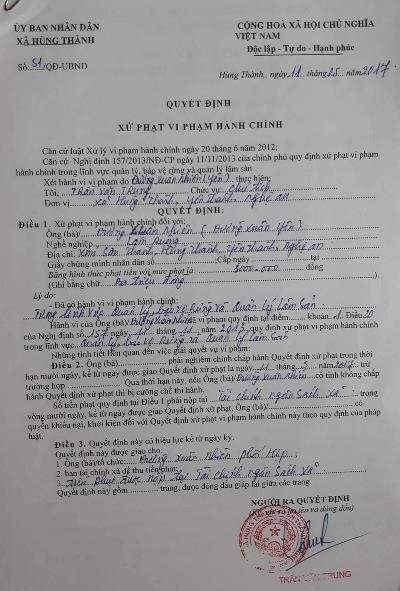 ỦY BAN NHÂN DÂN
XÃ HÙNG THÀNH
Số: 51/QĐ-UBND
CỘNG HOÀ XÃ HỘI CHỦ NGHĨA
VIỆT NAM
Độc lập - Tự do - Hạnh phúc
Hùng Thành, ngày 11 tháng 05 năm 2017
QUYẾT ĐỊNH
XỬ PHẠT VI PHẠM HÀNH CHÍNH
Căn cứ luật Xử lý vi phạm hành chính ngày 20 tháng 6 năm 2012;
Căn cứ Nghị định 157/2013/NĐ-CP ngày 11/11/2013 của chính phủ quy định xử phạt vi phạm
hành chính trong lĩnh vực quản lý, bảo vệ rừng và quản lý lâm sản
Xét hành vi vi phạm do Đường Xuân Nhiên (Yên) thực hiện;
Tôi, Trần Văn Trung Chức vụ: Chủ tịch
Đơn vị xã Hùng Thành, Yên Thành, Nghệ An
QUYẾT ĐỊNH:
Điều 1. Xử phạt vi phạm hành chính đối với:
Ông (bà) Đường Xuân Nhiên (Đường Xuân Yên)
Nghề nghiệp: Làm ruộng
Địa chỉ: Sơn Thành, Hùng Thành, Yên Thành, Nghệ An
Giấy chứng minh nhân dân số Cấp ngày tại
Bằng hình thức phạt tiền với mức phạt là: 3000.000 đồng
(Ghi bằng chữ Ba triệu đồng)
Lý do:
- Đã có hành vi vi phạm hành chính:
Trong lĩnh vực Quản lý, bảo vệ Rừng và Quản lý Lâm Sản
Hành vi của Ông (bà) Đường Xuân Nhiên quy định tại điểm khoản 1 Điều 20
của Nghị định số 157 ngày 11 tháng 11 năm 2013 quy định xử phạt vi phạm hành chính
trong lĩnh vực Quản lý bảo vệ Rừng và Quản lý Lâm Sản
Những tình tiết liên quan đến việc giải quyết vụ vi phạm:
Điều 2. Ông (bà) phải nghiêm chỉnh chấp hành Quyết định xử phạt trong thời
hạn mười ngày, kể từ ngày được giao Quyết định xử phạt là ngày 11 tháng 5 năm 2017 trừ
trường hợp Quá thời hạn này, nếu Ông (bà) Đường Xuân Nhiên cố tình không chấp
hành Quyết định xử phạt thì bị cưỡng chế thi hành.
Số tiền phạt quy định tại Điều 1 phải nộp tại Tài chính ngân sách xã trong
vòng mười ngày, kể từ ngày được giao Quyết định xử phạt. Ông (bà) có
quyền khiếu nại, khởi kiện đối với Quyết định xử phạt vi phạm hành chính này theo quy định của pháp
luật.
Điều 3. Quyết định này có hiệu lực kể từ ngày ký.
Quyết định này được giao cho:
1. Ông (bà)/tổ chức: Đường Xuân Nhiên
2. ban tài chính xã để thu tiền phạt;
3. Tiền phạt được nộp tại Tài chính ngân sách xã
Quyết định này gồm trang, được đóng dấu giáp lai giữa các trang.
NGƯỜI RA QUYẾT ĐỊNH
TRẦN VĂN TRUNG